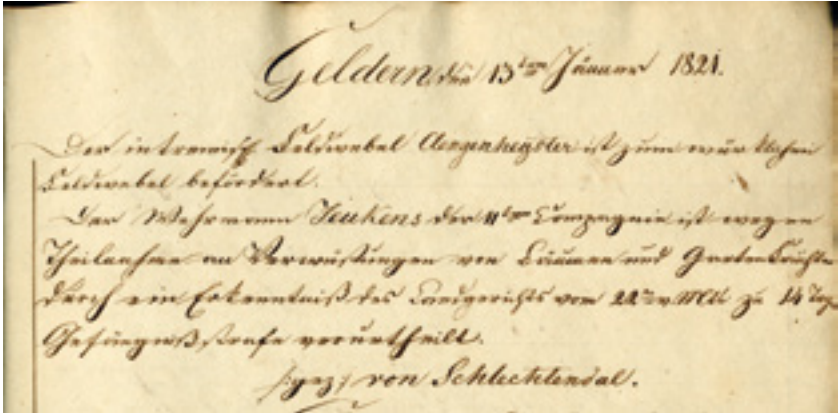 Geldern den 13ten Jänner 1821.
Der intremisch Feldwebel Aengenheyster ist zum würklichen
Feldwebel befördert.
Der Wehrmann Heukens der 11ten Compagnie ist wegen
Theilnahme an Verwüstungen von Bäumen und Gartenfrüchten
durch ein Erkenntniß des Landgerichts vom 22ten v. Mts zu 14 Tage
Gefängnißstrafe verurtheilt.
/:gez:/ von Schlechtendal.